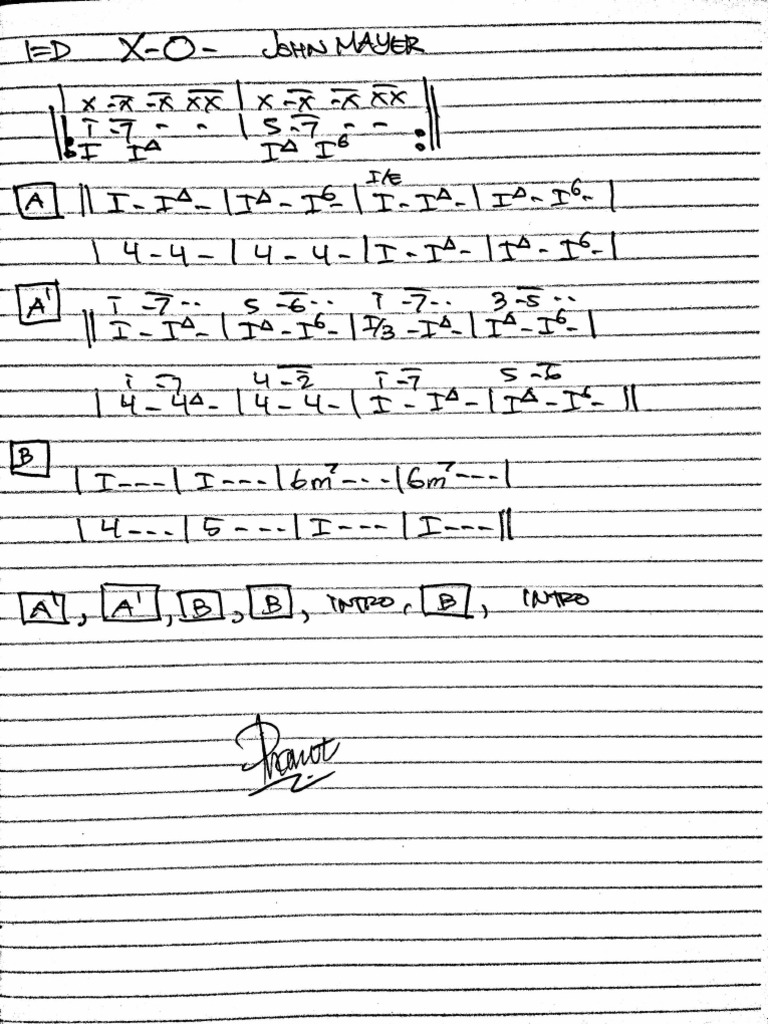 1=D X-O- JOHN MAYER
| x -x -x xx | x -x -x xx ||
||: i -7 - - | 5 -7 - - :||
I IΔ IΔ I6
A || I - IΔ - | IΔ - I6 - | I - IΔ - | IΔ - I6 - |
I/E
| 4 - 4 - | 4 - 4 - | I - IΔ - | IΔ - I6 - |
A' i -7 .. 5 -6 .. i -7 .. 3 -5 ..
|| I - IΔ - | IΔ - I6 - | I/3 - IΔ - | IΔ - I6 - |
i -7 4 -2 i -7 5 -6
| 4 - 4Δ - | 4 - 4 - | I - IΔ - | IΔ - I6 - ||
B
| I - - - | I - - - | 6m7 - - - | 6m7 - - - |
| 4 - - - | 5 - - - | I - - - | I - - - ||
A', A', B, B, INTRO, B, INTRO